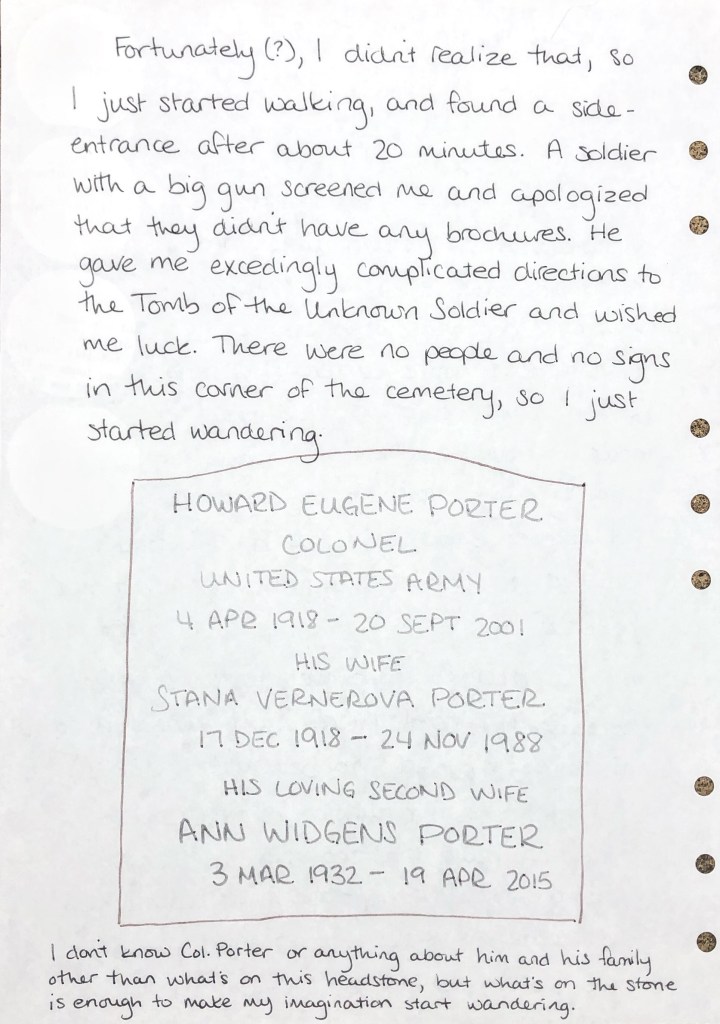 Fortunately (?), I didn't realize that, so
I just started walking, and found a side-
entrance after about 20 minutes. A soldier
with a big gun screened me and apologized
that they didn't have any brochures. He
gave me excedingly complicated directions to
the Tomb of the Unknown Soldier and wished
me luck. There were no people and no signs
in this corner of the cemetery, so I just
started wandering.
HOWARD EUGENE PORTER
COLONEL
UNITED STATES ARMY
4 APR 1918 - 20 SEPT 2001
HIS WIFE
STANA VERNEROVA PORTER
17 DEC 1918 - 24 NOV 1988
HIS LOVING SECOND WIFE
ANN WIDGENS PORTER
3 MAR 1932 - 19 APR 2015
I don't know Col. Porter or anything about him and his family
other than what's on this headstone, but what's on the stone
is enough to make my imagination start wandering.